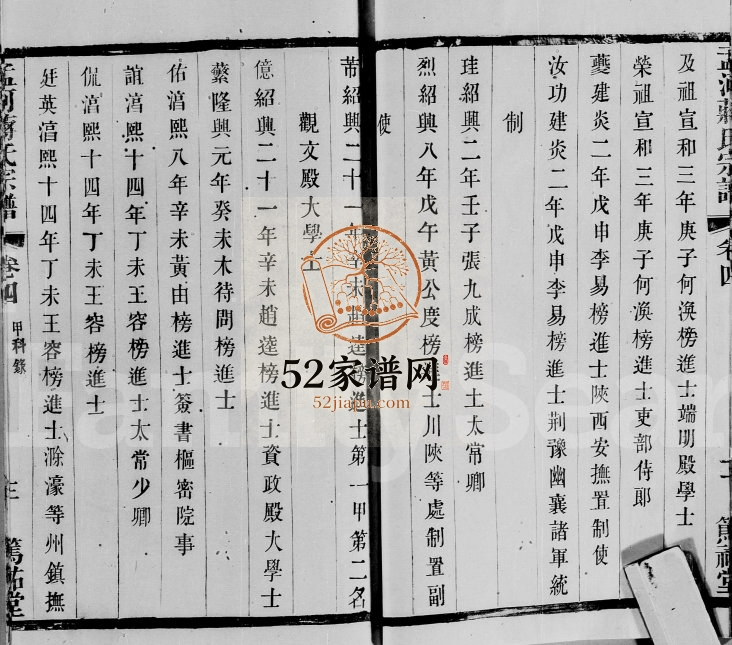 及祖宣和三年庚子何渙榜進士端明殿學士
榮祖宣和三年庚子何渙榜進士吏部侍郎
夔建炎二年戊申李易榜進士陝西安撫置制使
汝功建炎二年戊申李易榜進士荆豫幽襄諸軍統
制
珪紹興二年壬子張九成榜進士太常卿
烈紹興八年戊午黃公度榜進士川陝等處制置副
使
芾紹興二十一年辛未趙逵榜進士第一甲第二名
觀文殿大學士
億紹興二十一年辛未趙逵榜進士資政殿大學士
蘩隆興元年癸未木待問榜進士
佑淳熙八年辛未黃由榜進士簽書樞密院事
誼淳熙十四年丁未王容榜進士太常少卿
侃淳熙十四年丁未王容榜進士
廷英淳熙十四年丁未王容榜進士滁濠等州鎮撫
孟河蔣氏宗譜
卷四
甲科錄
三
篤祜堂
52家谱网
52jiapu.com